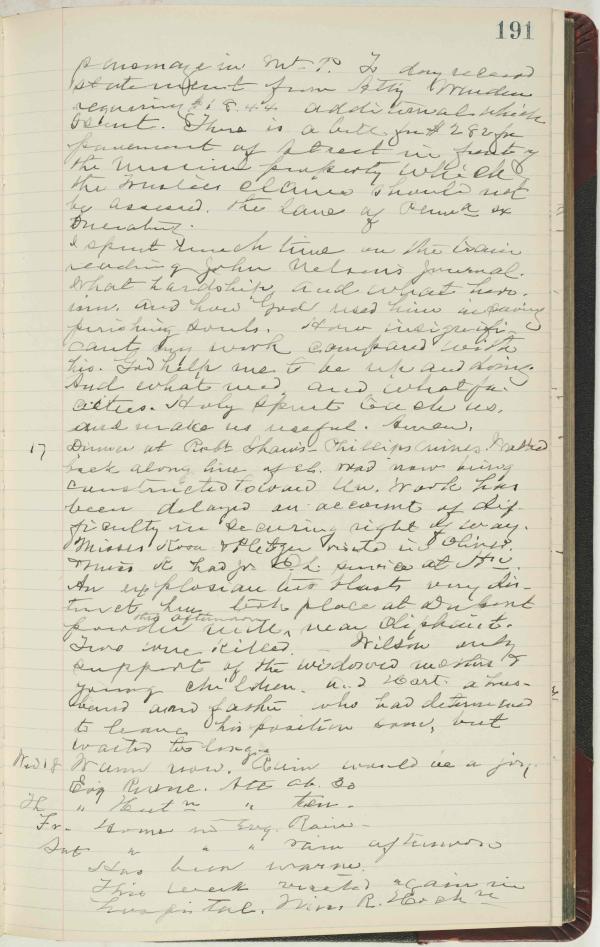 191
parsonage in Mt. P. To day received
statement from Atty
requiring $18.44 additional which
I sent. There is a bill for $282 for
pavement of street in front of
the Mission property which
the Trustees claim should not
be assessed. the laws of Penna ex
I spent much time on the train
reading John Nelson's Journal.
What hardship, and what hero-
ism. and how God used him in saving
perishing souls. How insignifi-
cant my work compared with
his. God help me to be up and doing.
And what need, and what fa-
cilities. Holy Spirit teach us,
and make us useful. Amen.
17 Dinner at Robt Shaw's - Phillips mines. Walked
back along line of st. road now being
constructed toward Un. Work has
been delayed on account of dif-
ficulty in securing right of way.
Misses Rosa & visited in Oliver.
& Miss R has jr. service at
An explosion two blasts very dis-
tinct here took place at Dupont
this afternoon
powder mill, near Oliphant.
Two were killed. - Wilson only
support of the widowed mother &
young children. and Hart a hus-
band and father who had determined
to leave his position soon, but
waited too long.
Wed 18 Warm now. Rain would be a joy.
Evg P. Att ab. 30
Th " " ten.
Fr - Home in Evg. Rain -
Sat " " " rain afternoon
Has been warm.
This week visited again in
hospital. Miss R.